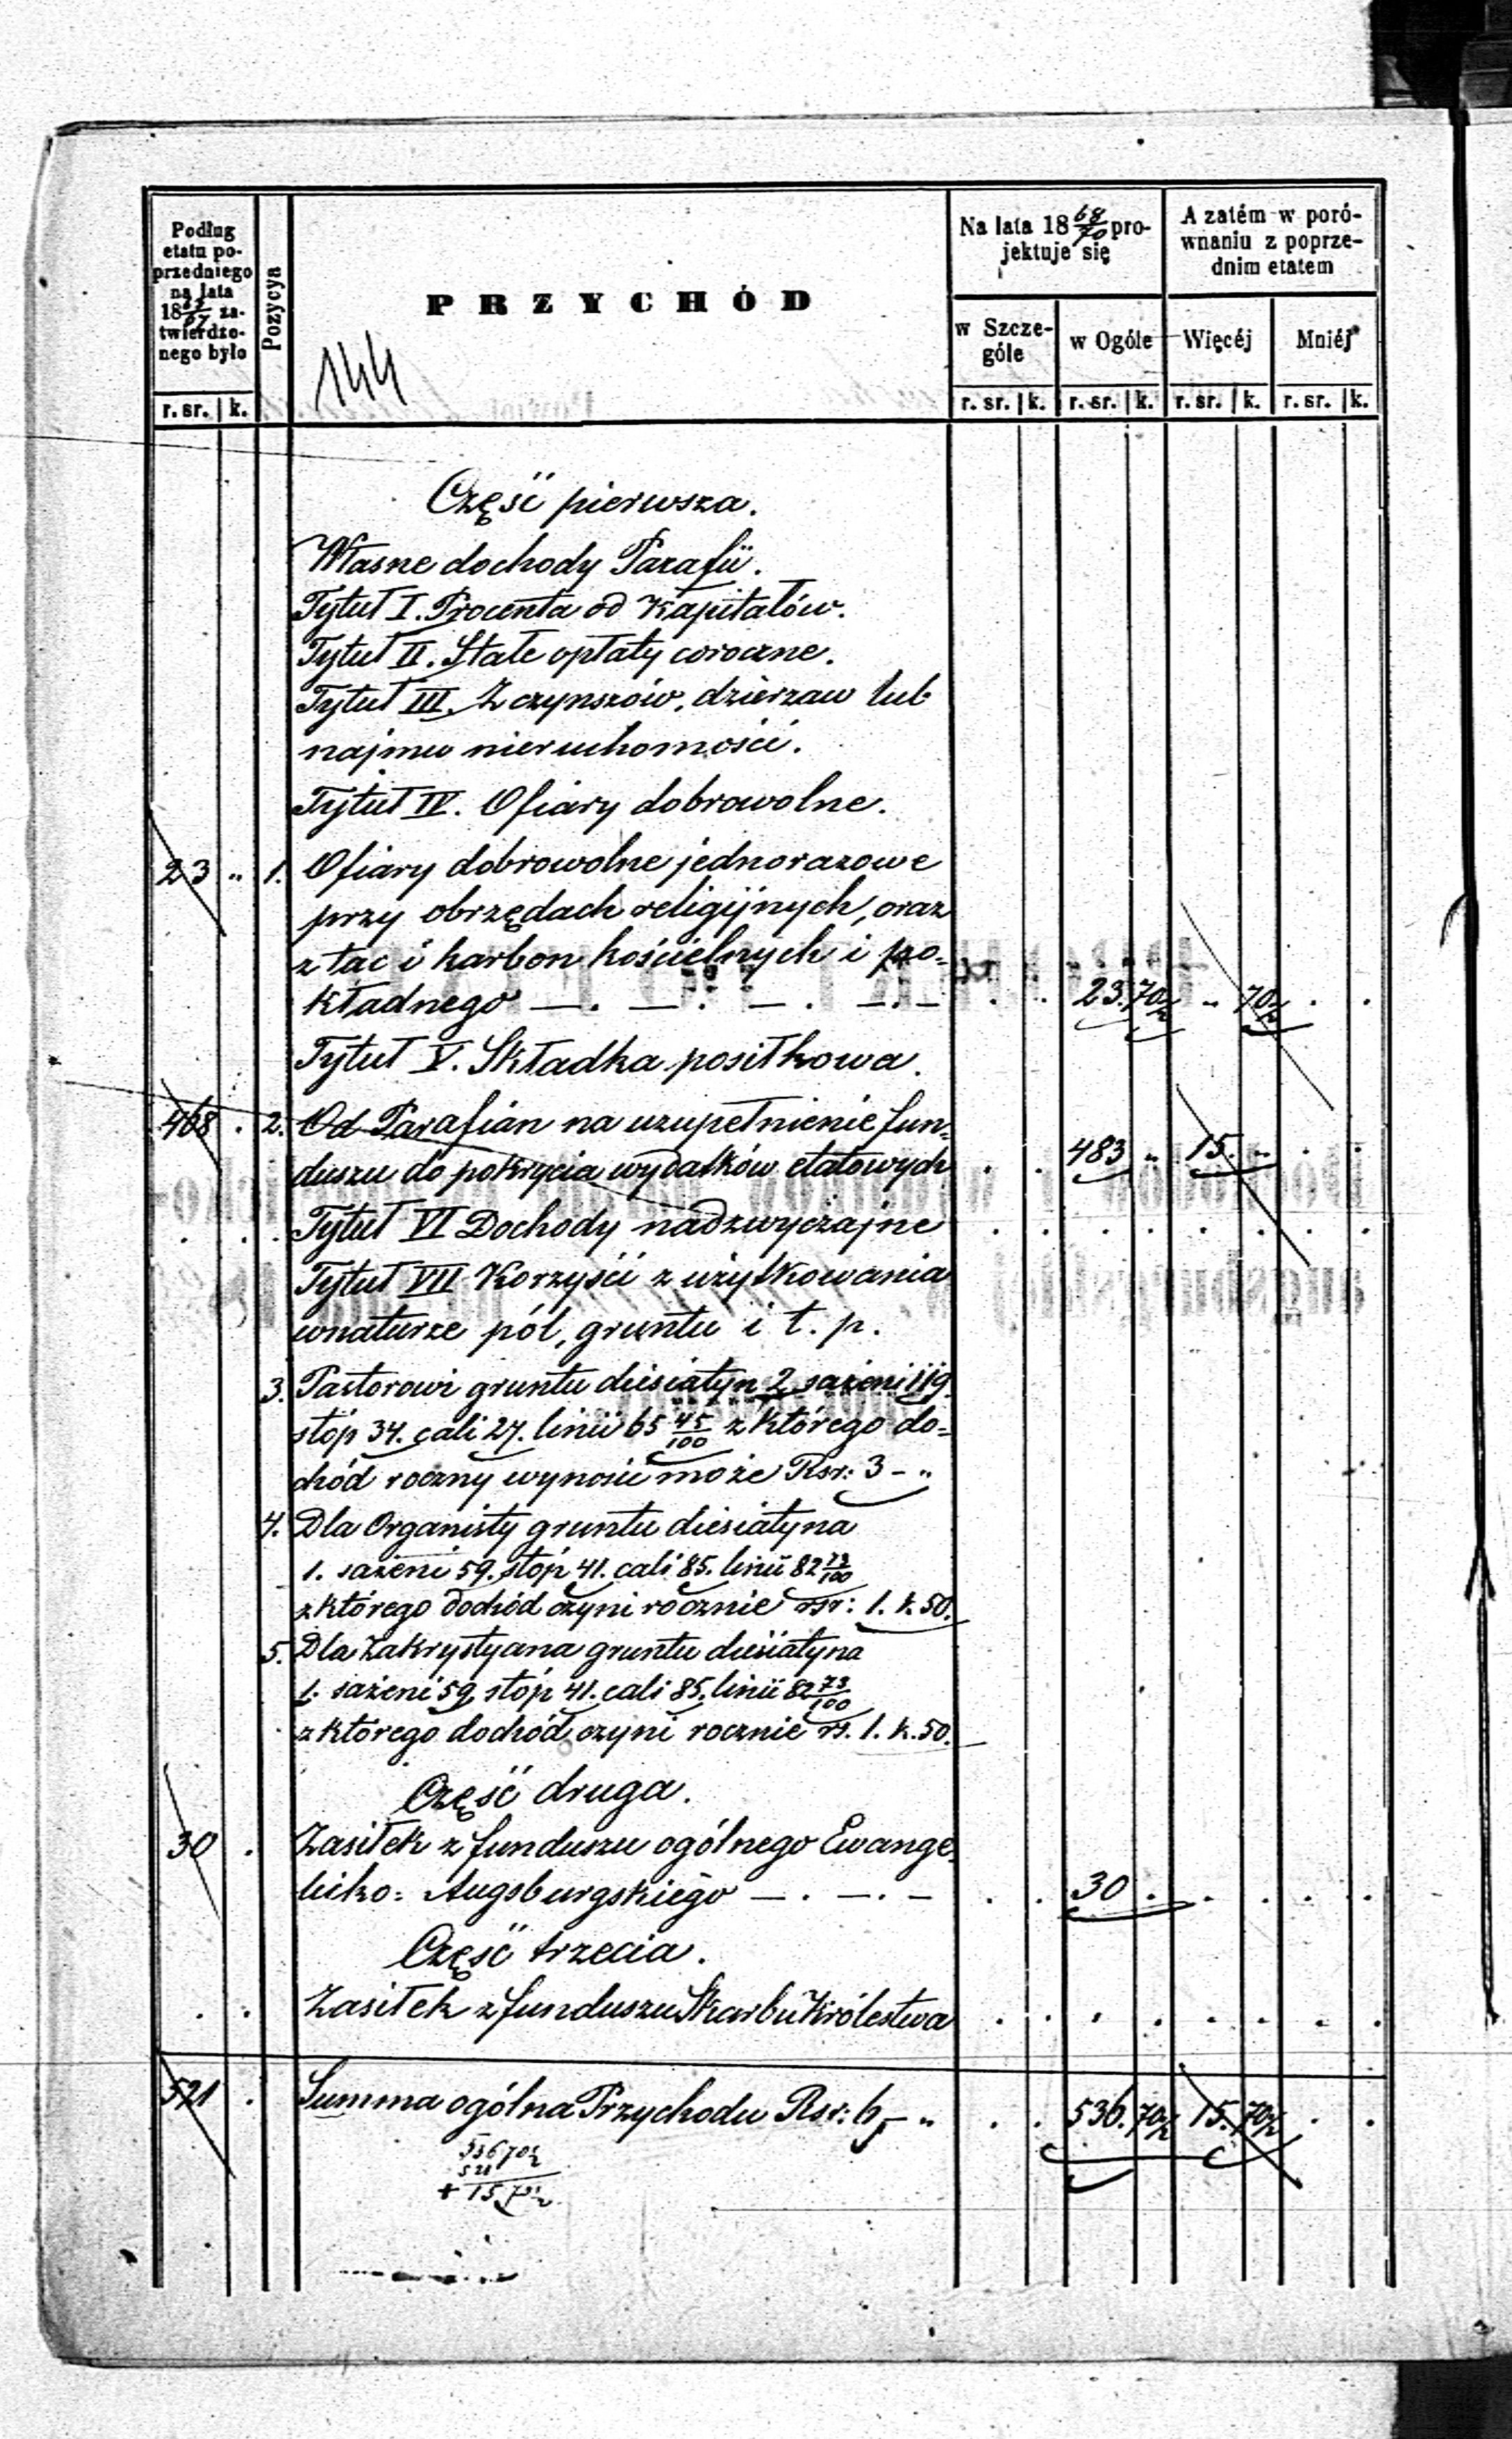 Podług
etatu po-
przedniego
na lata
18 za-
twierdzo-
nego było
r. sr. k.
Pozycya
PRZYCHÓD
144
Na lata 18 68/70 pro-
jektuje się
w Szcze-
góle
w Ogóle
r. sr. k. r. sr. k.
A zatém w poró-
wnaniu z poprze-
dnim etatem
Więcéj
Mniéj
r. sr. k. r. sr. k.
Część pierwsza.
Własne dochody Parafii.
Tytuł I. Procenta od Kapitałów.
Tytuł II. Stałe opłaty coroczne.
Tytuł III. Z czynszów, dzierzaw lub
najmu nieruchomości.
Tytuł IV. Ofiary dobrowolne.
23 " 1. Ofiary dobrowolne jednorazowe
przy obrzędach religijnych, oraz
z tac i karbon kościelnych i po-
kładnego — . — . — . — . — 23. 70½ " 70½
Tytuł V. Składka posiłkowa.
468 . 2. Od Parafian na uzupełnienie fun-
duszu do pokrycia wydatków etatowych 483 " 15. "
Tytuł VI Dochody nadzwyczajne
Tytuł VII Korzyści z użytkowania
wnaturze pól, gruntu i t. p.
3. Pastorowi gruntu diesiatyn 2 sażeni 119
stóp 34. cali 27. linii 65 45/100 z którego do-
chód roczny wynosić może Rsr: 3 - "
4. Dla Organisty gruntu diesiatyna
1. sażeni 59. stóp 41. cali 85. linii 82 73/100
z którego dochód czyni rocznie rsr: 1. k. 50.
5. Dla Zakrystyana gruntu diesiatyna
1. sażeni 59 stóp 41. cali 85. linii 82 73/100
z którego dochód czyni rocznie rs. 1. k. 50.
Część druga.
30 . Zasiłek z funduszu ogólnego Ewange-
licko- Augsburgskiego — . — . — 30 .
Część trzecia.
Zasiłek z funduszu Skarbu Królestwa
521 . Summa ogólna Przychodu Rsr: 6, - " 536. 70½ 15. 70½
536 70½
521
+ 15 70½